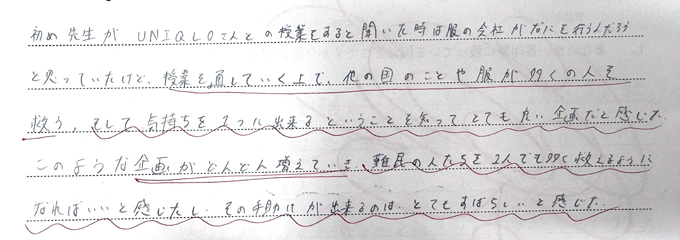 初め先生がUNIQLOさんとの授業をすると聞いた時は服の会社がなにを行うんだろう
と思っていたけど、授業を通していく上で、他の国のことや服が多くの人を
救う、そして気持ちを1つに出来るということを知って、とても良い企画だと感じた。
このような企画がどんどん増えていき、難民の人たちを1人でも多く救えるように
なればいいと感じたし、その手助けが出来るのは、とてもすばらしいと感じた。